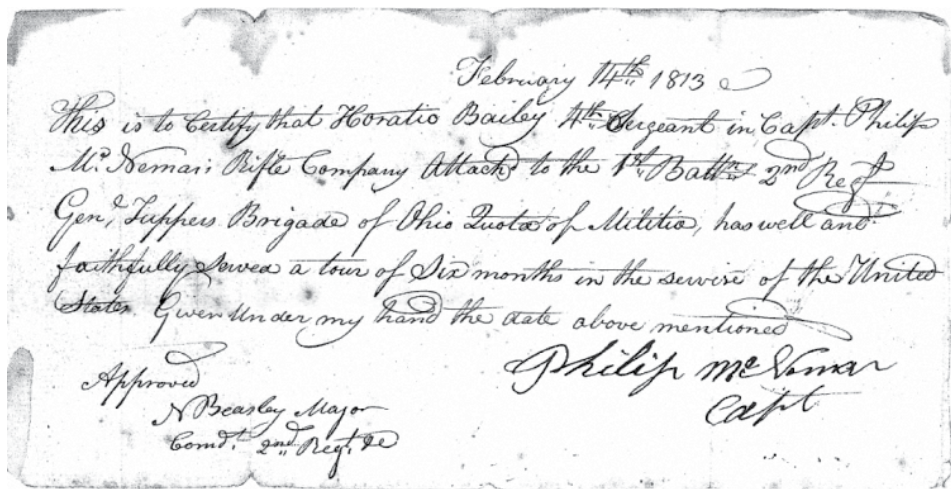 February 14th 1813
This is to Certify that Horatio Bailey 4th Sergeant in Capt. Philip
Mc. Nemar's Rifle Company Attachd to the 1st Battn 2nd Regt
Genl Tuppers Brigade of Ohio Quota of Militia, has well and
faithfully served a tour of Six months in the service of the United
States. Given Under my hand the date above mentioned
Philip Mc Nemar
Capt
Approved
N Beasley Major
Comdt 2nd Regt &c